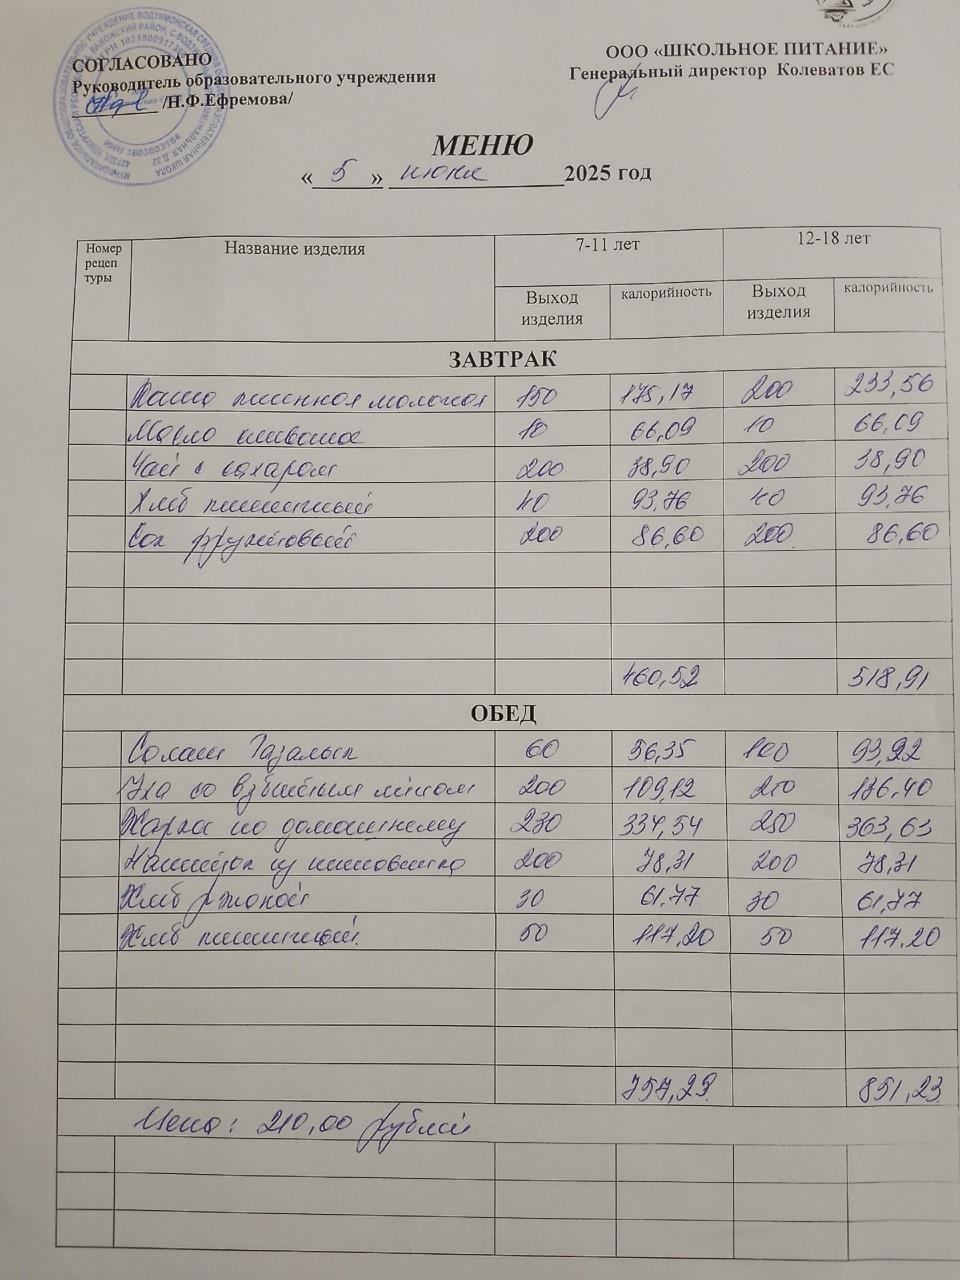 СОГЛАСОВАНО
Руководитель образовательного учреждения
/Н.Ф.Ефремова/
ООО «ШКОЛЬНОЕ ПИТАНИЕ»
Генеральный директор Колеватов ЕС
МЕНЮ
« 5 » июня 2025 год
Номер рецептуры Название изделия 7-11 лет 12-18 лет
Выход изделия калорийность Выход изделия калорийность
ЗАВТРАК
Каша пшенная молочная 150 175,17 200 233,56
Масло сливочное 10 66,09 10 66,09
Чай с сахаром 200 38,90 200 38,90
Хлеб пшеничный 40 93,76 40 93,76
Сок фруктовый 200 86,60 200 86,60
460,52 518,91
ОБЕД
Салат 60 56,35 100 93,92
Уха со взбитым яйцом 200 109,12 250 136,40
Жаркое по домашнему 230 334,54 250 363,63
Напиток из шиповника 200 78,31 200 78,31
Хлеб ржаной 30 61,77 30 61,77
Хлеб пшеничный 50 117,20 50 117,20
757,29 851,23
Цена: 210,00 рублей